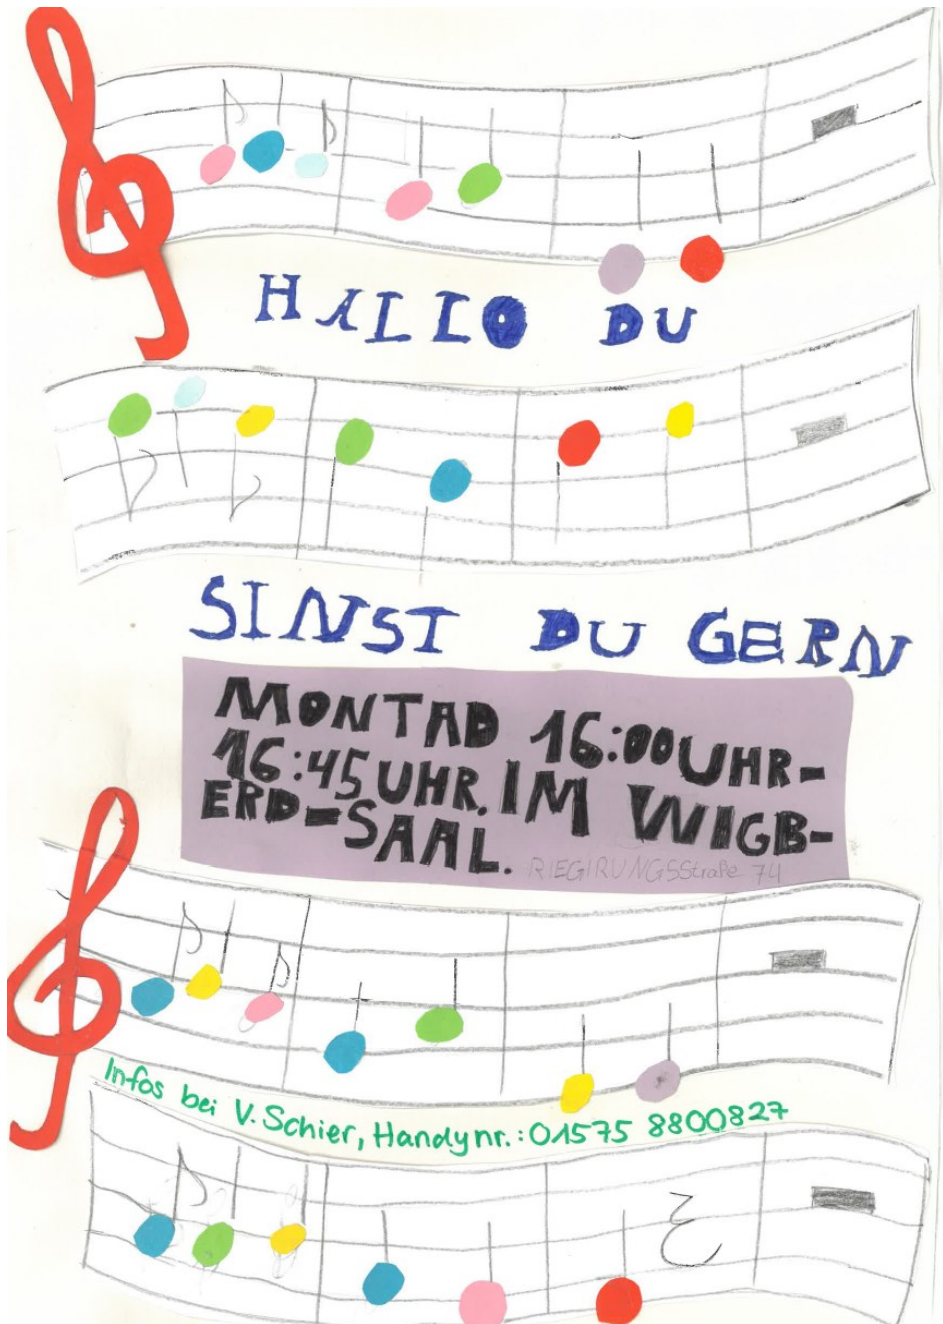 HALLO DU
SINST DU GERN
MONTAD 16:00UHR-
16:45UHR. IM WIGB-
ERD=SAAL.
RIEGIRUNGSStraße 74
Infos bei V. Schier, Handynr.: 01575 8800827